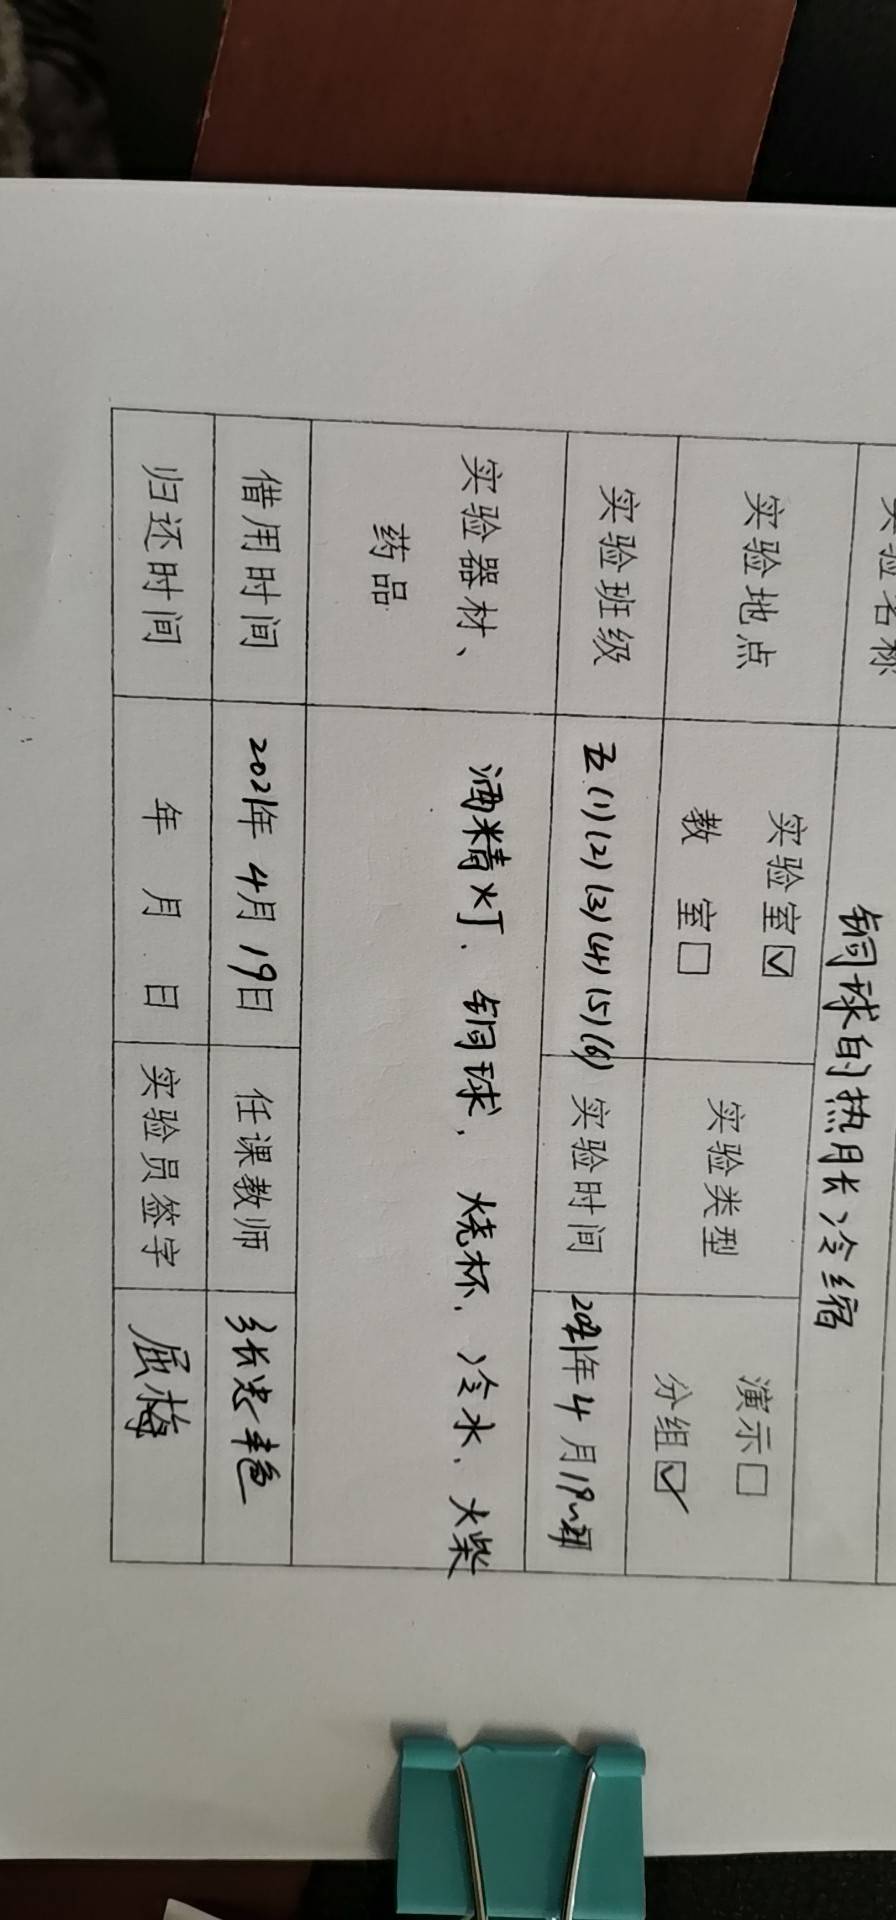 实验名称 铜球的热胀冷缩
实验地点 实验室☑ 教 室□ 实验类型 演示□ 分组☑
实验班级 五.(1)(2)(3)(4)(5)(6) 实验时间 2021年4月19日
实验器材、
药品
酒精灯、铜球、烧杯、冷水、火柴
借用时间 2021年4月19日 任课教师 张忠艳
归还时间 年 月 日 实验员签字 屈梅